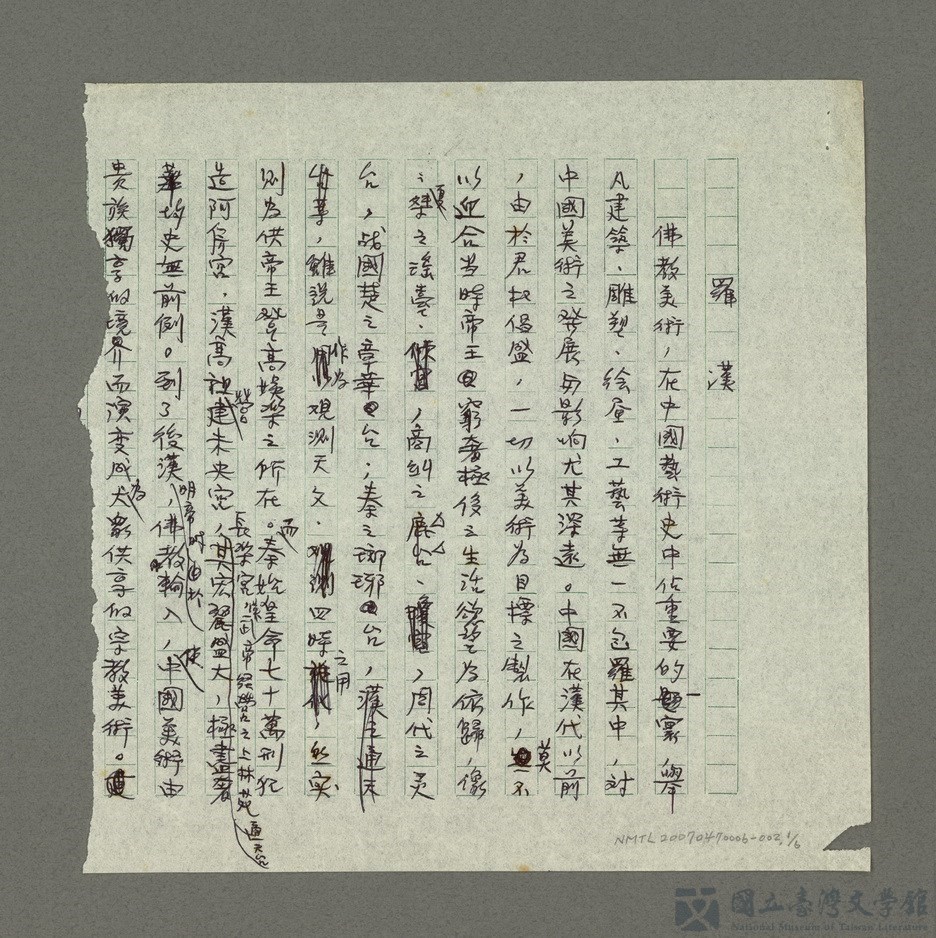 羅漢
佛教美術，在中國藝術史中佔重要的一裏，舉
凡建築、雕塑、绘畫、工藝等無一不包羅其中，对
中國美術之發展与影响尤其深遠。中國在漢代以前
，由於君权倡盛，一切以美術為目標之製作，莫不
以迎合当時帝王窮奢極侈之生活慾望為依歸，像
夏桀之瑤臺、商紂之鹿台、周代之灵
台，战國楚之章華台；秦之琅琊台，漢之通天
台等，雖說是作为观测天文、四時之用，然实
则为供帝王登高娛樂之所在。而秦始皇命七十萬刑犯
造阿房宮，漢高祖營建未央宮，長樂宮，武帝經營之上林苑通天台
其宏麗盛大，極盡奢
華均史無前例。到了後漢，明帝時由於佛教輸入，使中國美術由
貴族獨享的境界而演变成為大眾供享的宗教美術。
NMTL 20070470006-002, 1/6
國立臺灣文學館
National Museum of Taiwan Literature